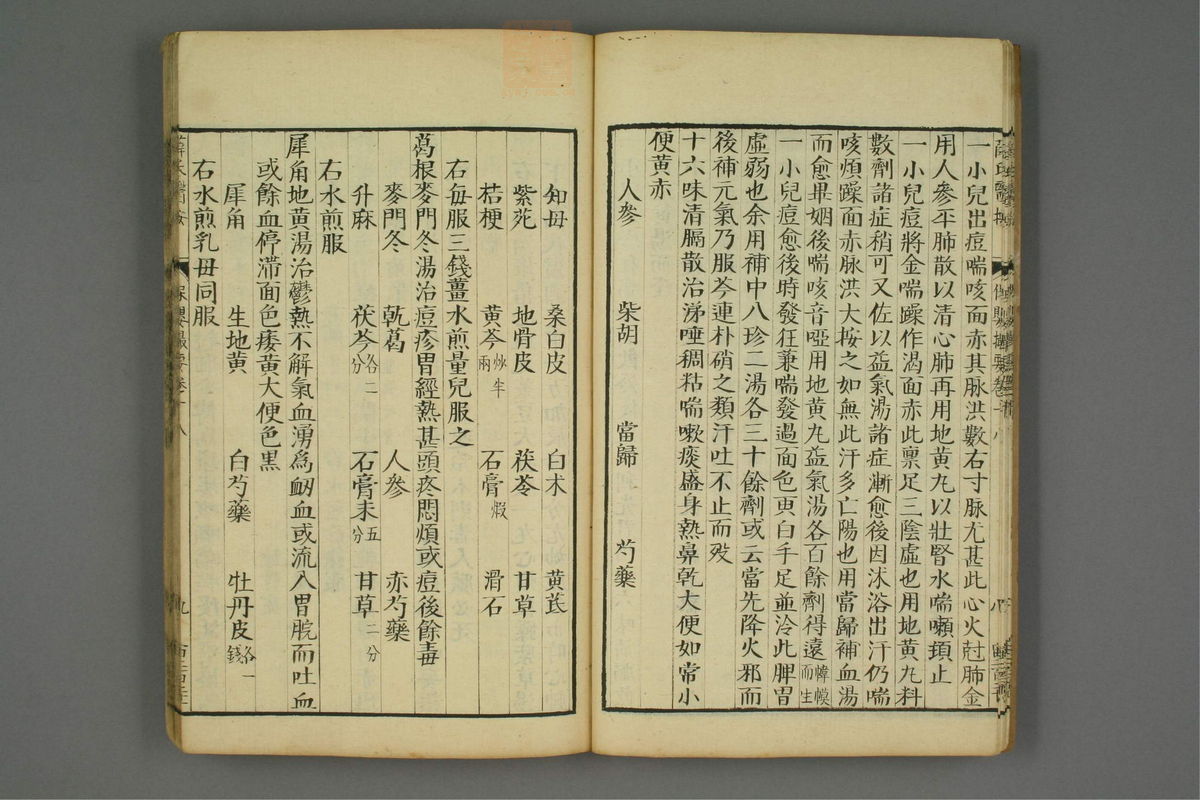 一小兒出痘喘咳而赤其脉洪數右寸脉尤甚此心火尅肺金
用人參平肺散以清心肺再用地黄丸以壯腎水喘嗽頓止
一小兒痘將金喘躁作渴面赤此禀足三隂虛也用地黄丸料
數劑諸症稍可又佐以益氣湯諸症漸愈後因沐浴出汗仍喘
咳煩躁面赤脉洪大按之如無此汗多亡陽也用當歸補血湯
而愈畢姻後喘咳音啞用地黄丸益氣湯各百餘劑得遠幃幙而生
一小兒痘愈後時發狂兼喘發過面色更白手足並冷此脾胃
虛弱也余用補中八珍二湯各三十餘劑或云當先降火邪而
後補元氣乃服芩連朴硝之類汗吐不止而歿
十六味清膈散治涕唾稠粘喘嗽痰盛身熱鼻乾大便如常小
便黄赤
人參 柴胡 當歸 芍藥
知母 桑白皮 白术 黄芪
紫苑 地骨皮 茯苓 甘草
桔梗 黄芩炒半兩 石膏煅 滑石
右每服三錢薑水煎量兒服之
葛根麥門冬湯治痘疹胃經熱甚頭疼悶煩或痘後餘毒
麥門冬 乾葛 人參 赤芍藥
升麻 茯苓各二分 石膏末五分 甘草二分
右水煎服
犀角地黄湯治鬱熱不解氣血湧爲衂血或流入胃脘而吐血
或餘血停滯面色痿黄大便色黒
犀角 生地黄 白芍藥 牡丹皮各一錢
右水煎乳母同服